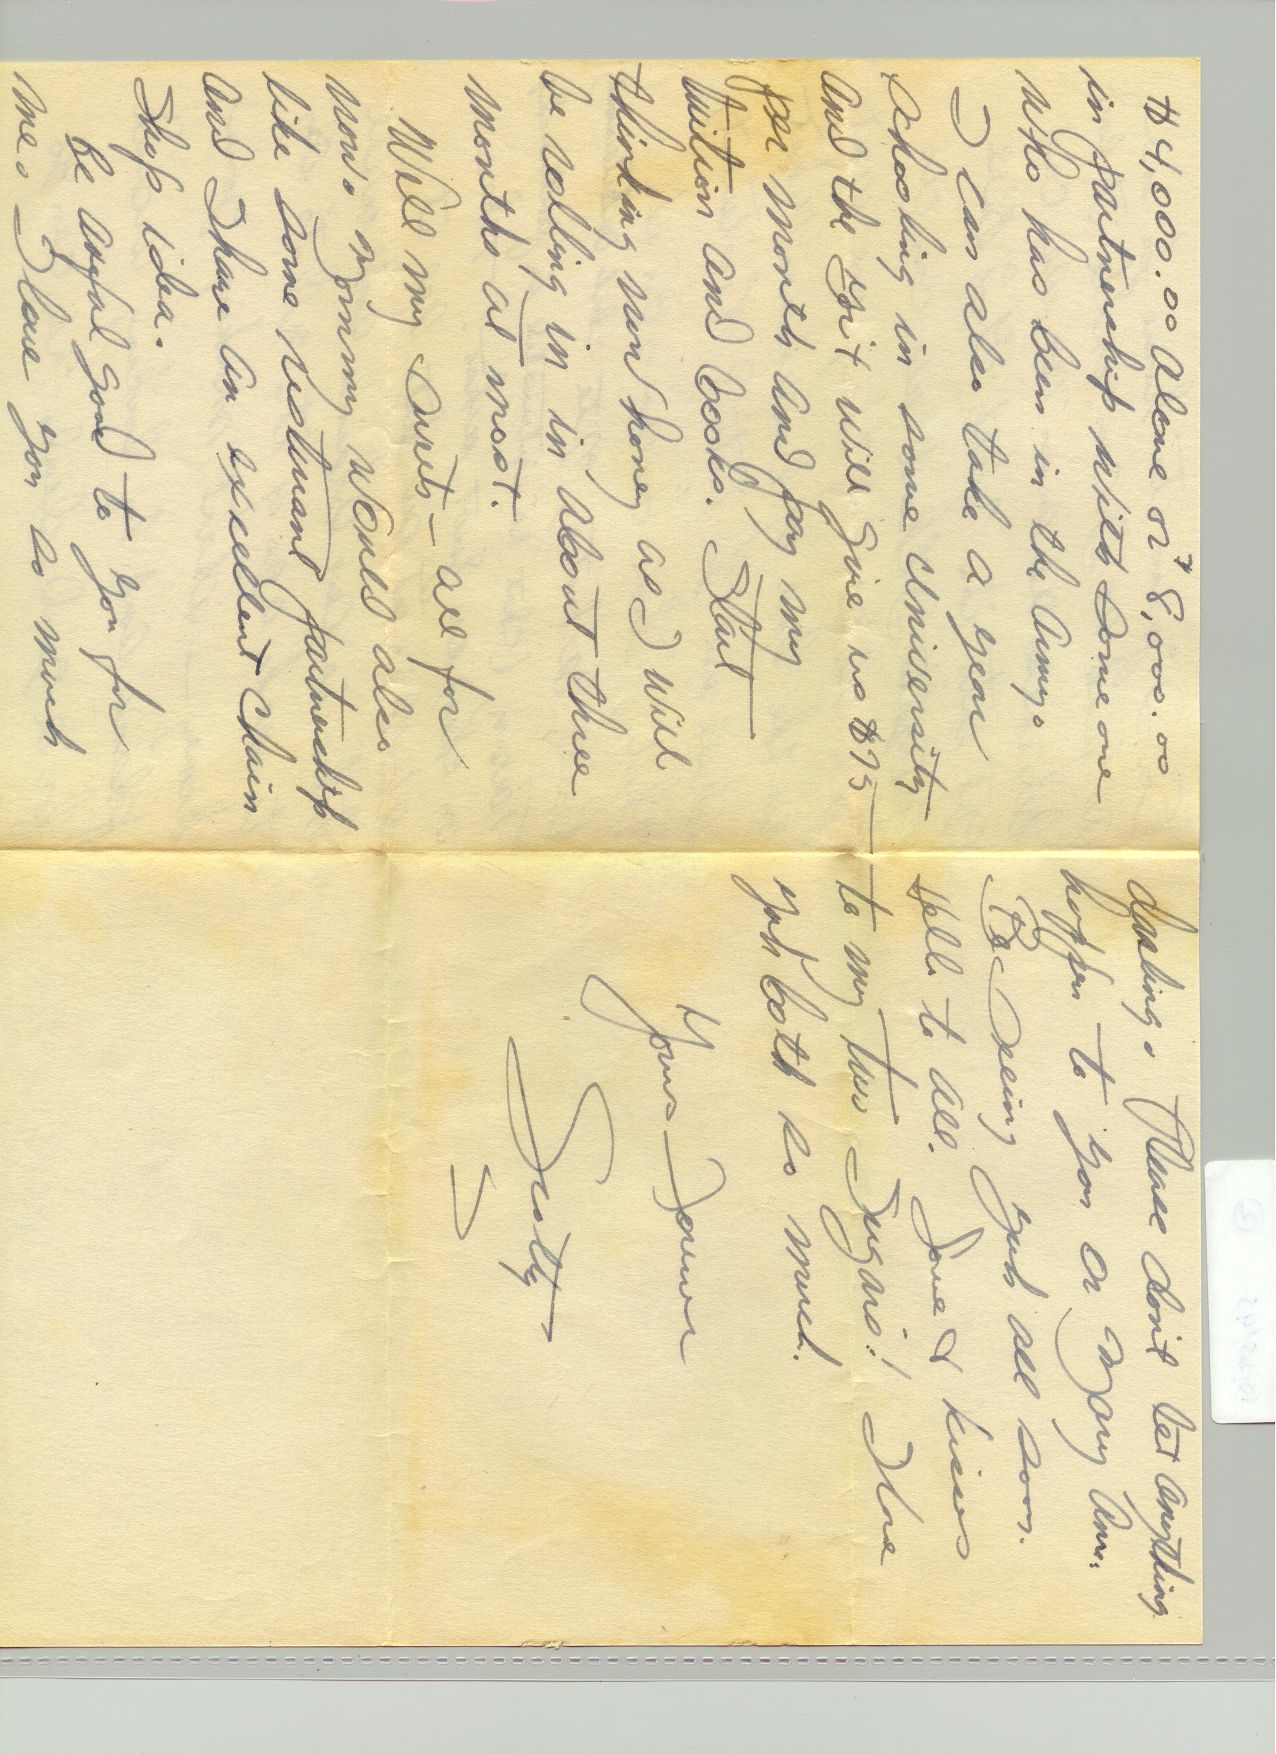 $4,000.00 alone or $8,000.00
in partnership with some one
who has been in the Army.
I can also take a year
schooling in some University
and the Govt will give us $75
per month and pay my
tuition and books. Start
thinking now honey as I will
be rolling in in about three
months at most.
Well my Sweets - all for
now. Mommy would also
like some resturant partnership
and I have an excellent chain
shop idea.
Be awful good to you for
me. I love you so much
darling. Please don't let anything
happen to you or Mary Ann.
Be seeing yuh all soon.
Hello to all. Love & kisses
to my two Sugars! I love
yuh both so much.
Yours Forever
Scotty
5
10/25/45